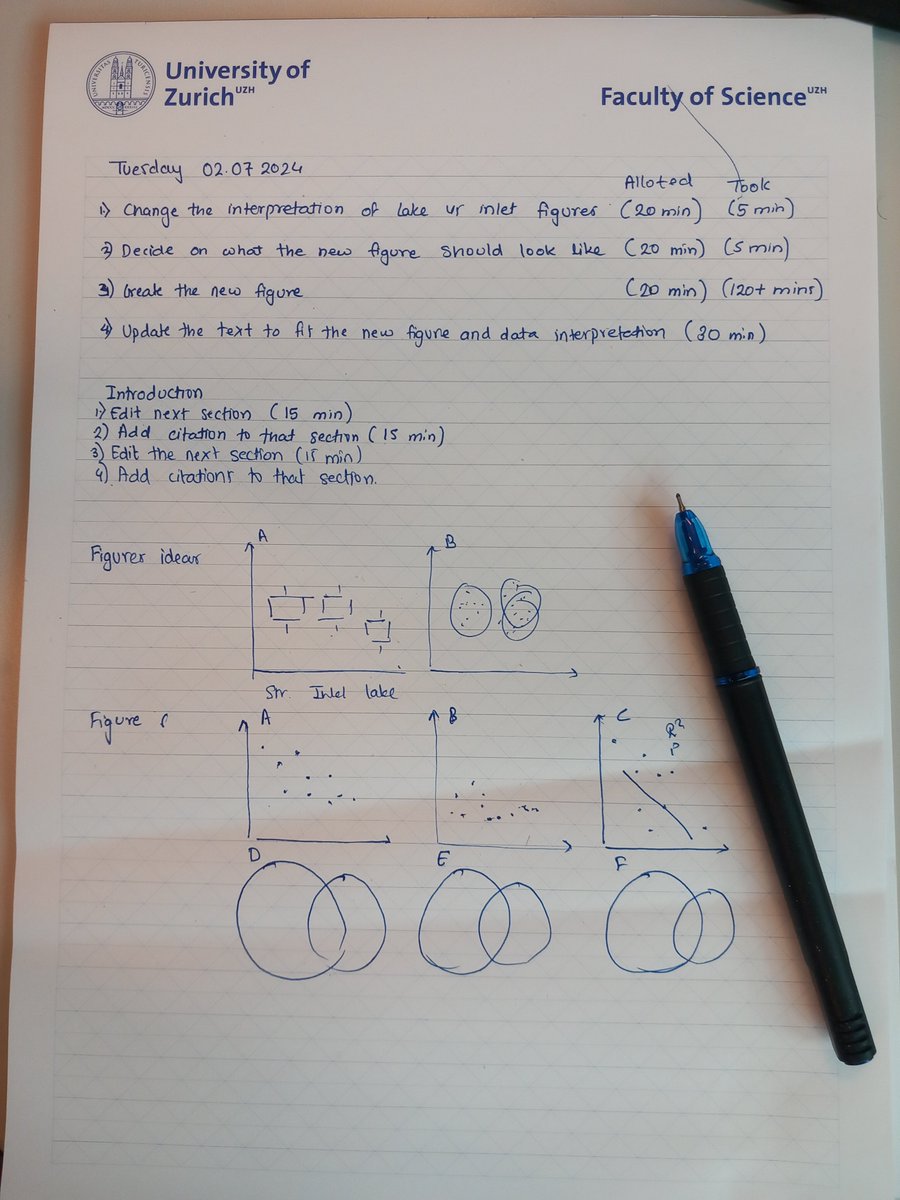 University of
Zurich UZH
Faculty of Science UZH
Tuesday 02.07 2024
Alloted Took
1) Change the interpretation of lake vr inlet figures (20 min) (5 min)
2) Decide on what the new figure should look like (20 min) (5 min)
3) Create the new figure (20 min) (120+ mins)
4) Update the text to fit the new figure and data interpretation (30 min)
Introduction
1) Edit next section (15 min)
2) Add citation to that section (15 min)
3) Edit the next section (15 min)
4) Add citations to that section.
Figures ideas
A B
Str. Inlet lake
Figure
A B C
R²
P
D E F